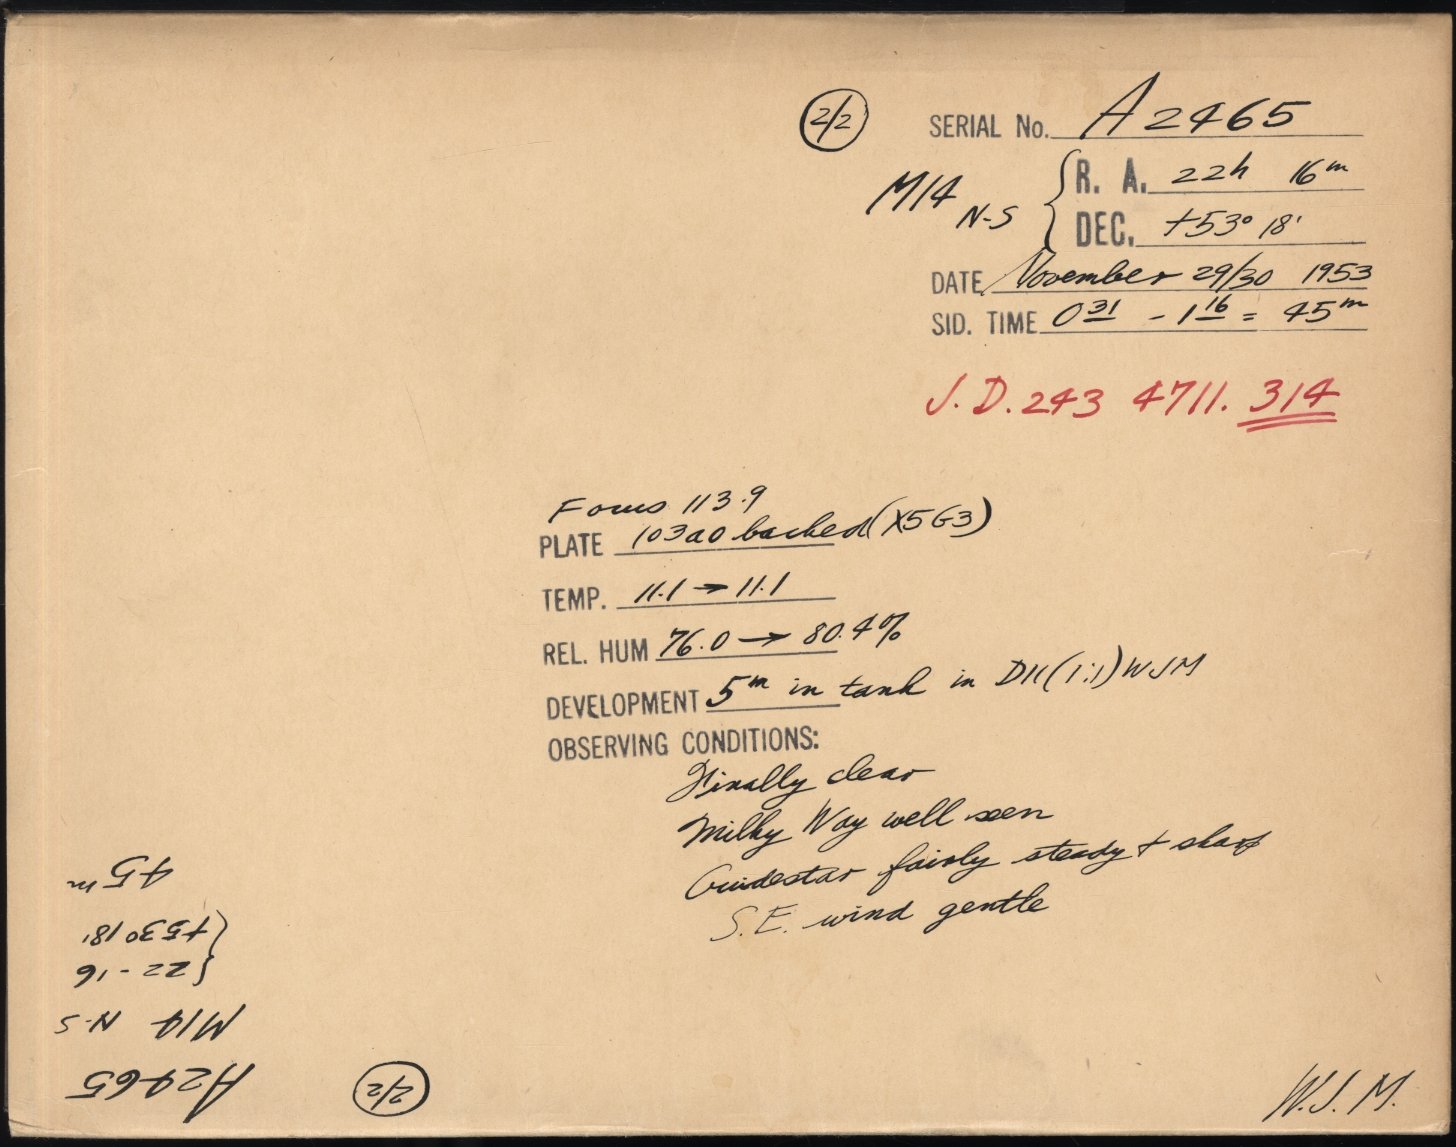 2/2
SERIAL No. A2465
M14 N-S
R. A. 22h 16m
DEC. +53° 18'
DATE November 29/30 1953
SID. TIME 0 31 - 1 16 = 45m
J.D. 243 4711.314
Focus 113.9
PLATE 103a0 backed (X5G3)
TEMP. 11.1 → 11.1
REL. HUM 76.0 → 80.4%
DEVELOPMENT 5m in tank in D11 (1:1) WJM
OBSERVING CONDITIONS:
Finally clear
Milky Way well seen
Guidestar fairly steady + sharp
S.E. wind gentle
W.J.M.
2/2
A2465
M14 N-S
22 - 16
+53° 18'
45m